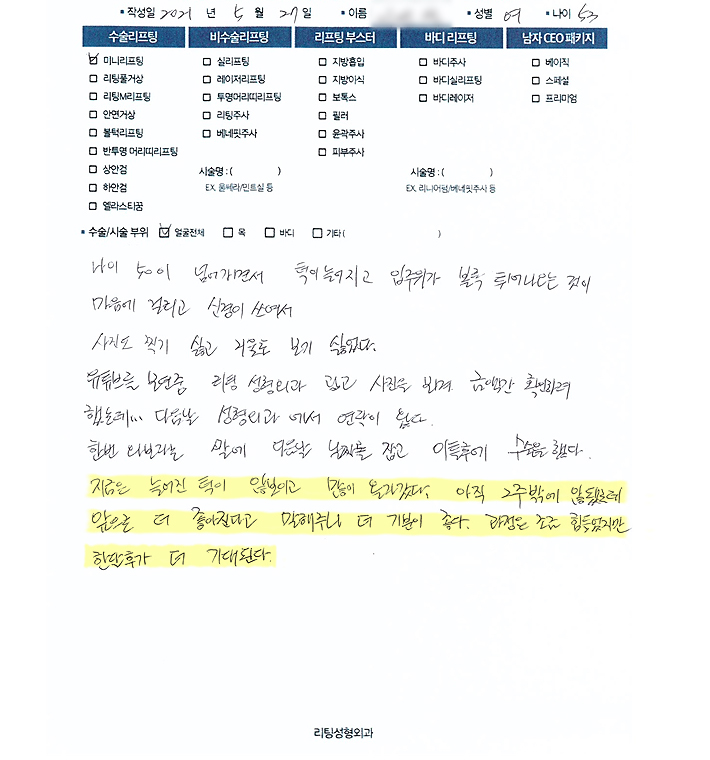 ▪ 작성일 2021 년 5 월 27 일 ▪ 이름 ▪ 성별 여 ▪ 나이 53
수술리프팅 비수술리프팅 리프팅 부스터 바디 리프팅 남자 CEO 패키지
☑ 미니리프팅 ☐ 실리프팅 ☐ 지방흡입 ☐ 바디주사 ☐ 베이직
☐ 리팅풀거상 ☐ 레이저리프팅 ☐ 지방이식 ☐ 바디실리프팅 ☐ 스페셜
☐ 리팅M리프팅 ☐ 투명머리띠리프팅 ☐ 보톡스 ☐ 바디레이저 ☐ 프리미엄
☐ 안면거상 ☐ 리팅주사 ☐ 필러
☐ 볼턱리프팅 ☐ 베네핏주사 ☐ 윤곽주사
☐ 반투명 머리띠리프팅 ☐ 피부주사
☐ 상안검 시술명 : ( ) 시술명 : ( )
☐ 하안검 EX. 울쎄라/민트실 등 EX. 리니어펌/베네핏주사 등
☐ 엘라스티꿈
▪ 수술/시술 부위 ☑ 얼굴전체 ☐ 목 ☐ 바디 ☐ 기타 ( )
나이 50이 넘어가면서 턱이 늘어지고 입주위가 볼록 튀어나오는 것이
마음에 걸리고 신경이 쓰여서
사진도 찍기 싫고 거울도 보기 싫었다.
유튜브를 보던중 리팅 성형외과 광고 사진을 보며 금액만 확인하려
했는데... 다음날 성형외과 에서 연락이 왔다.
한번 와보라는 말에 다음날 날짜를 잡고 이틀후에 수술을 했다.
지금은 늘어진 턱이 안보이고 많이 올라갔다. 아직 2주밖에 안됐는데
앞으로 더 좋아진다고 말해주니 더 기분이 좋다. 과정은 조금 힘들었지만
한달후가 더 기대된다.
리팅성형외과